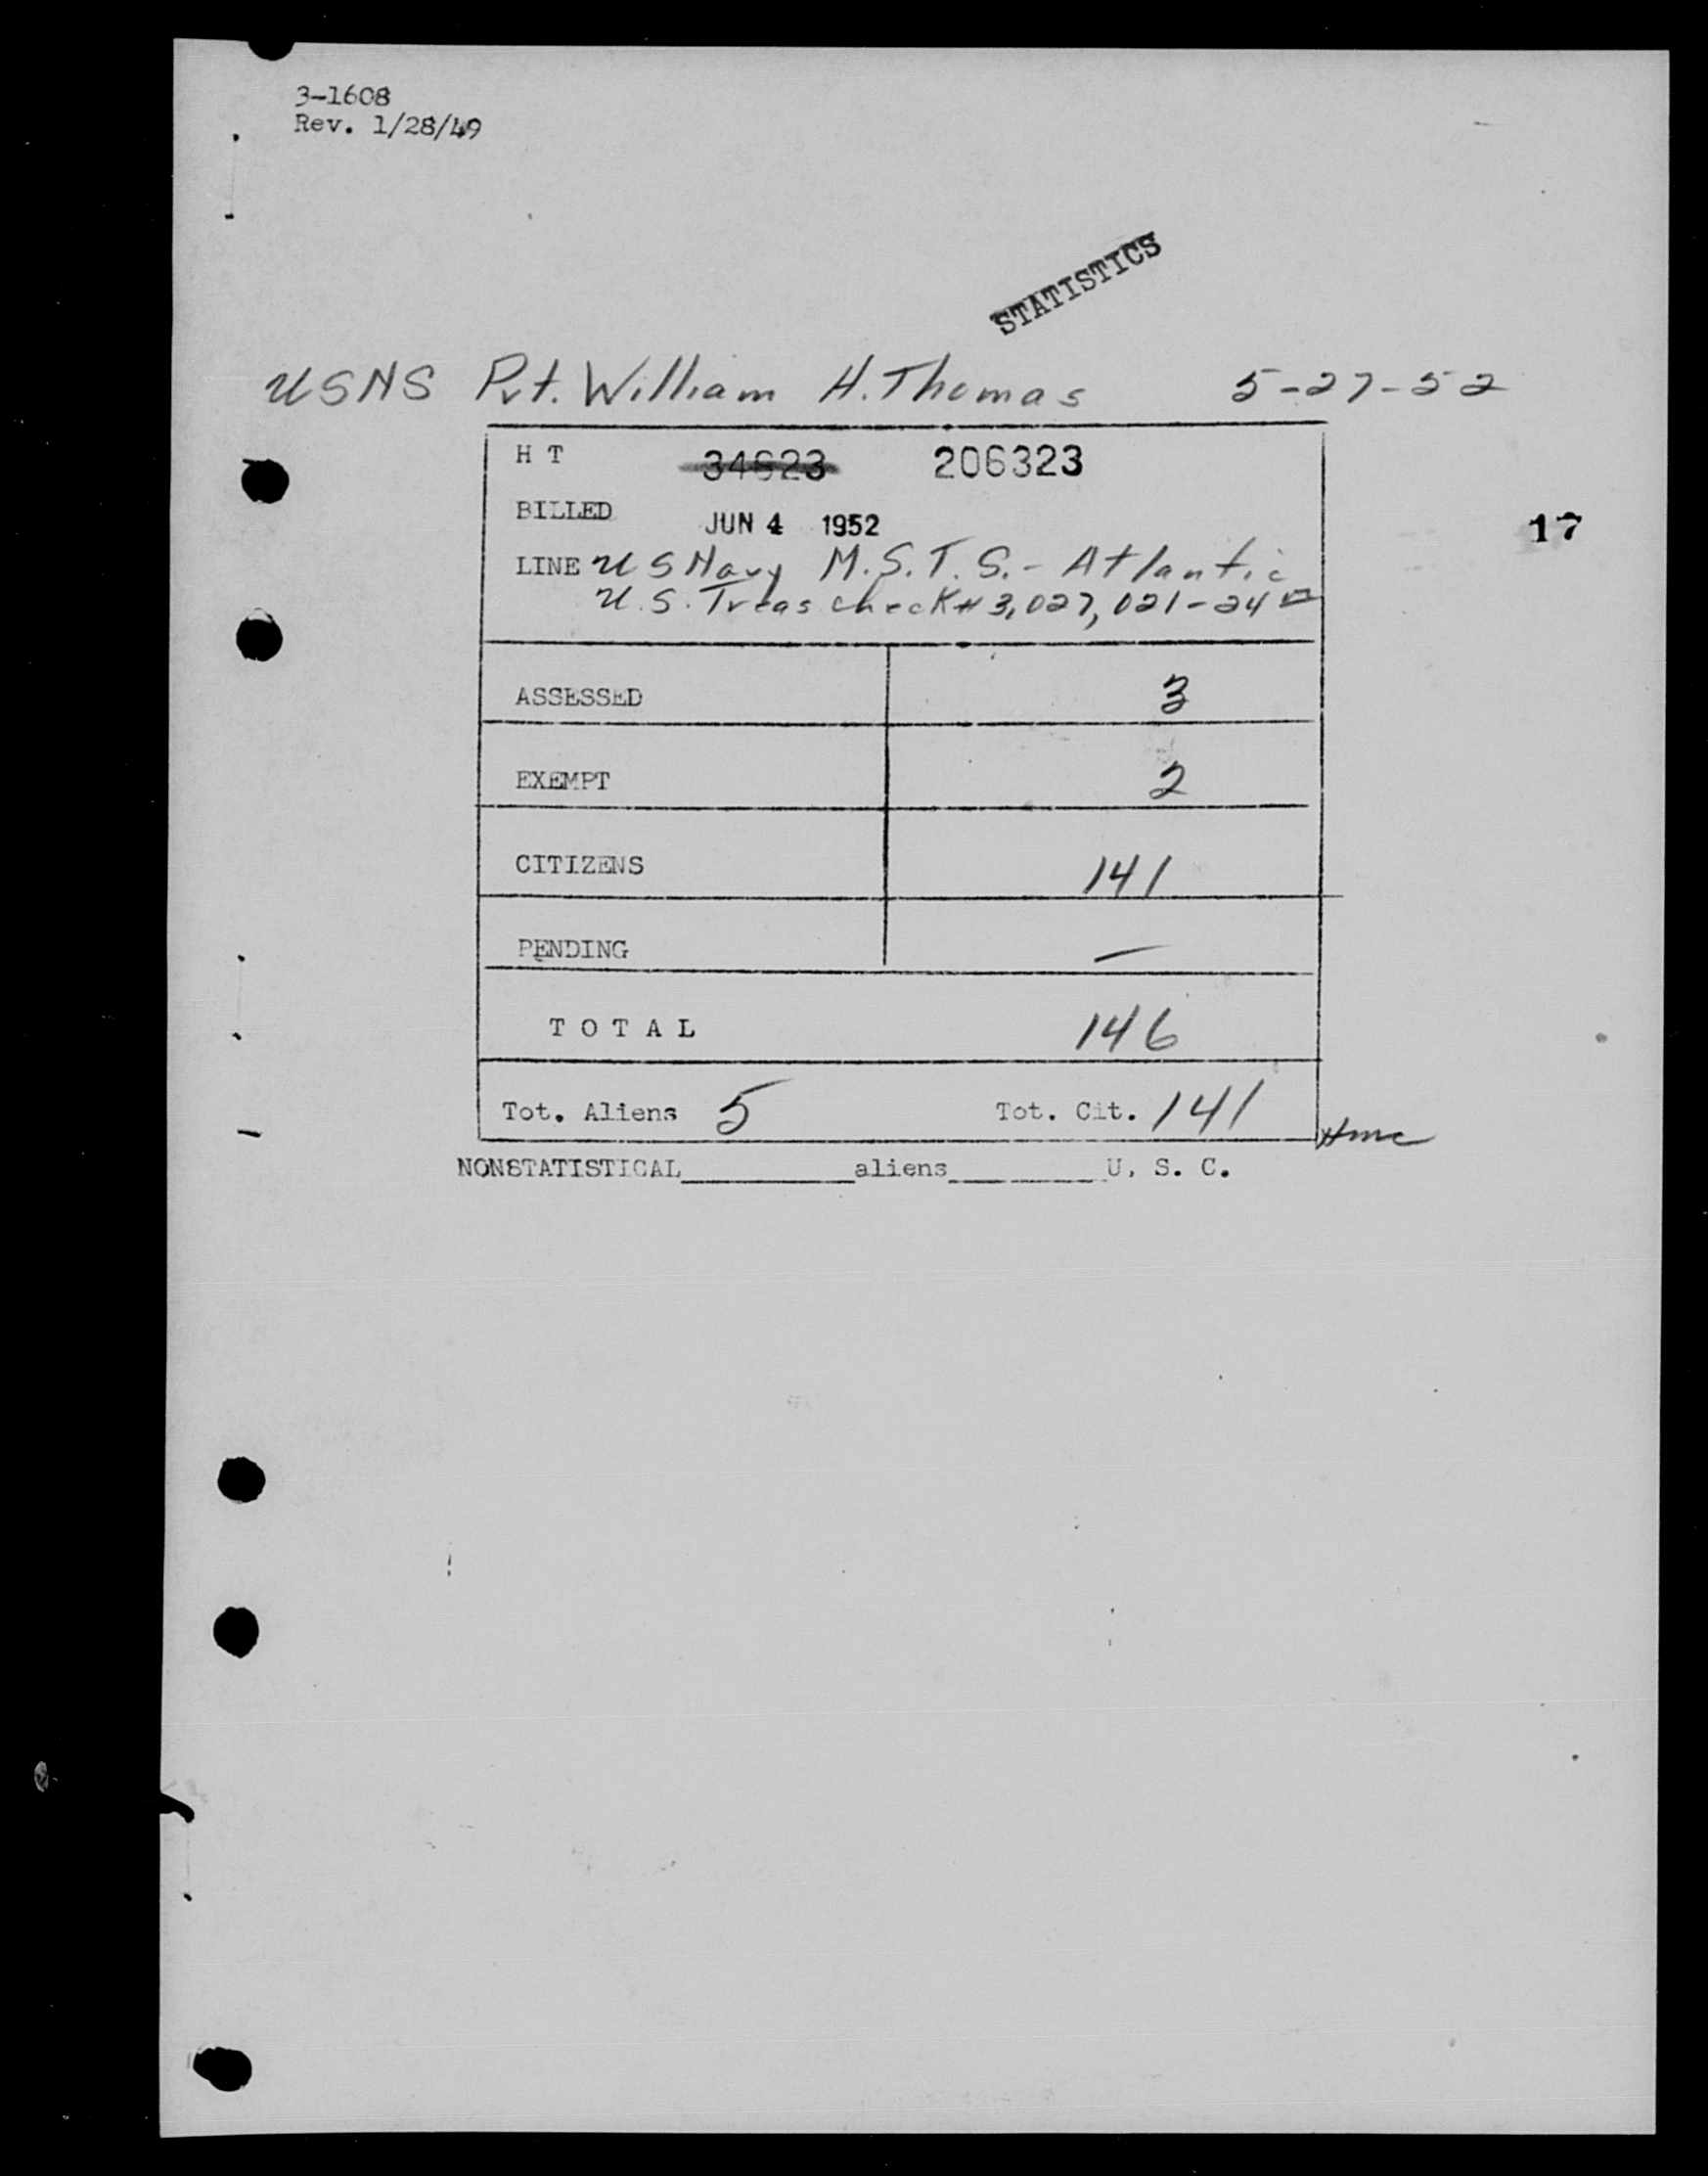 3-1608
Rev. 1/28/49
STATISTICS
USNS Pvt. William H. Thomas 5-27-52
H T 34623 206323
BILLED JUN 4 1952
17
LINE US Navy M.S.T.S. - Atlantic
U.S. Treas check # 3,027,021 - 24
ASSESSED 3
EXEMPT 2
CITIZENS 141
PENDING —
TOTAL 146
Tot. Aliens 5 Tot. Cit. 141
NONSTATISTICAL________aliens________U. S. C.